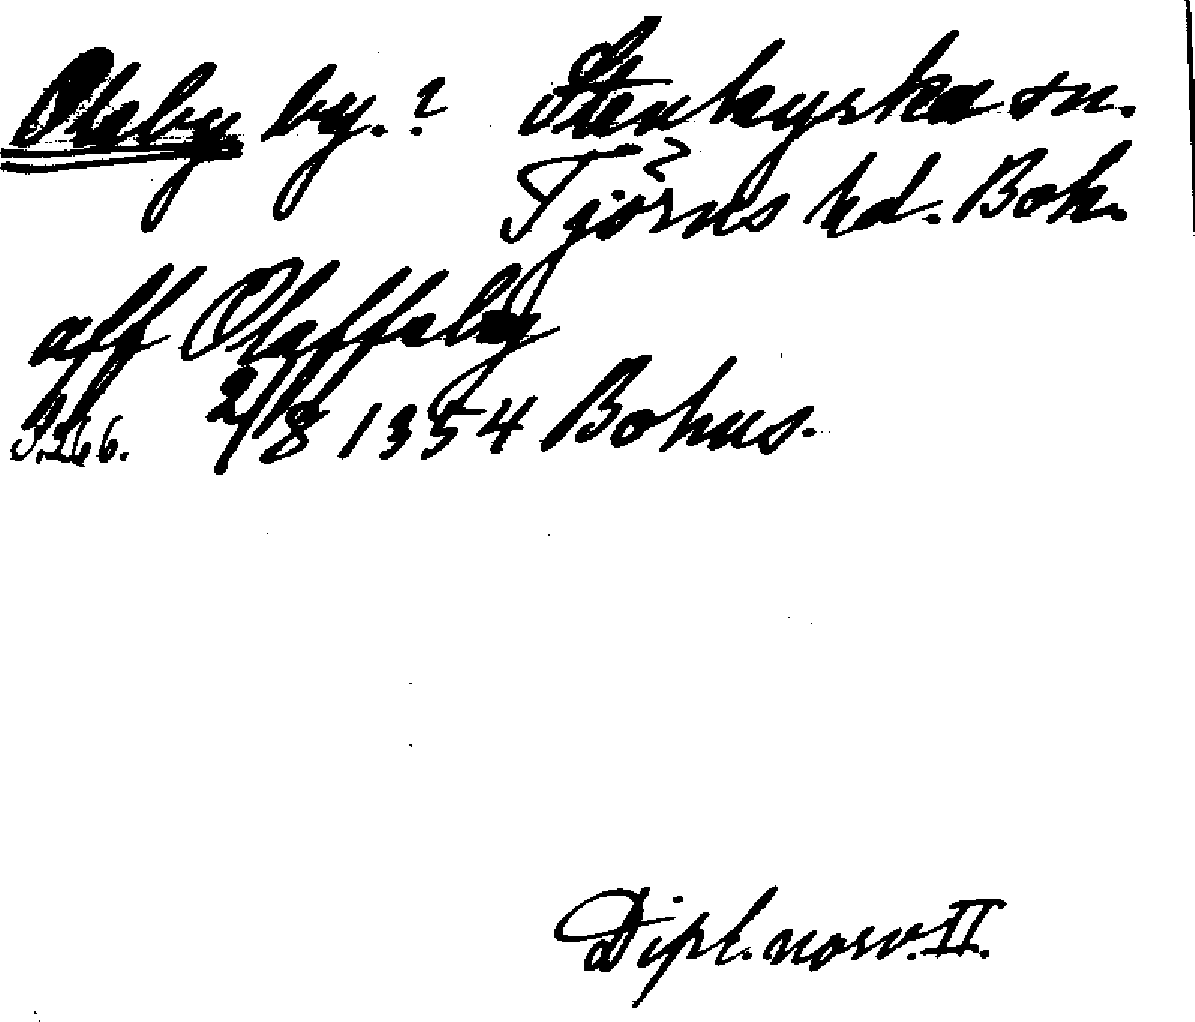 Oleby by.? Stenkyrka sn.
Tjörns hd. Boh.
aff Olaffaby
S.266. 2/8 1354 Bohus.
Dipl. norv. II.